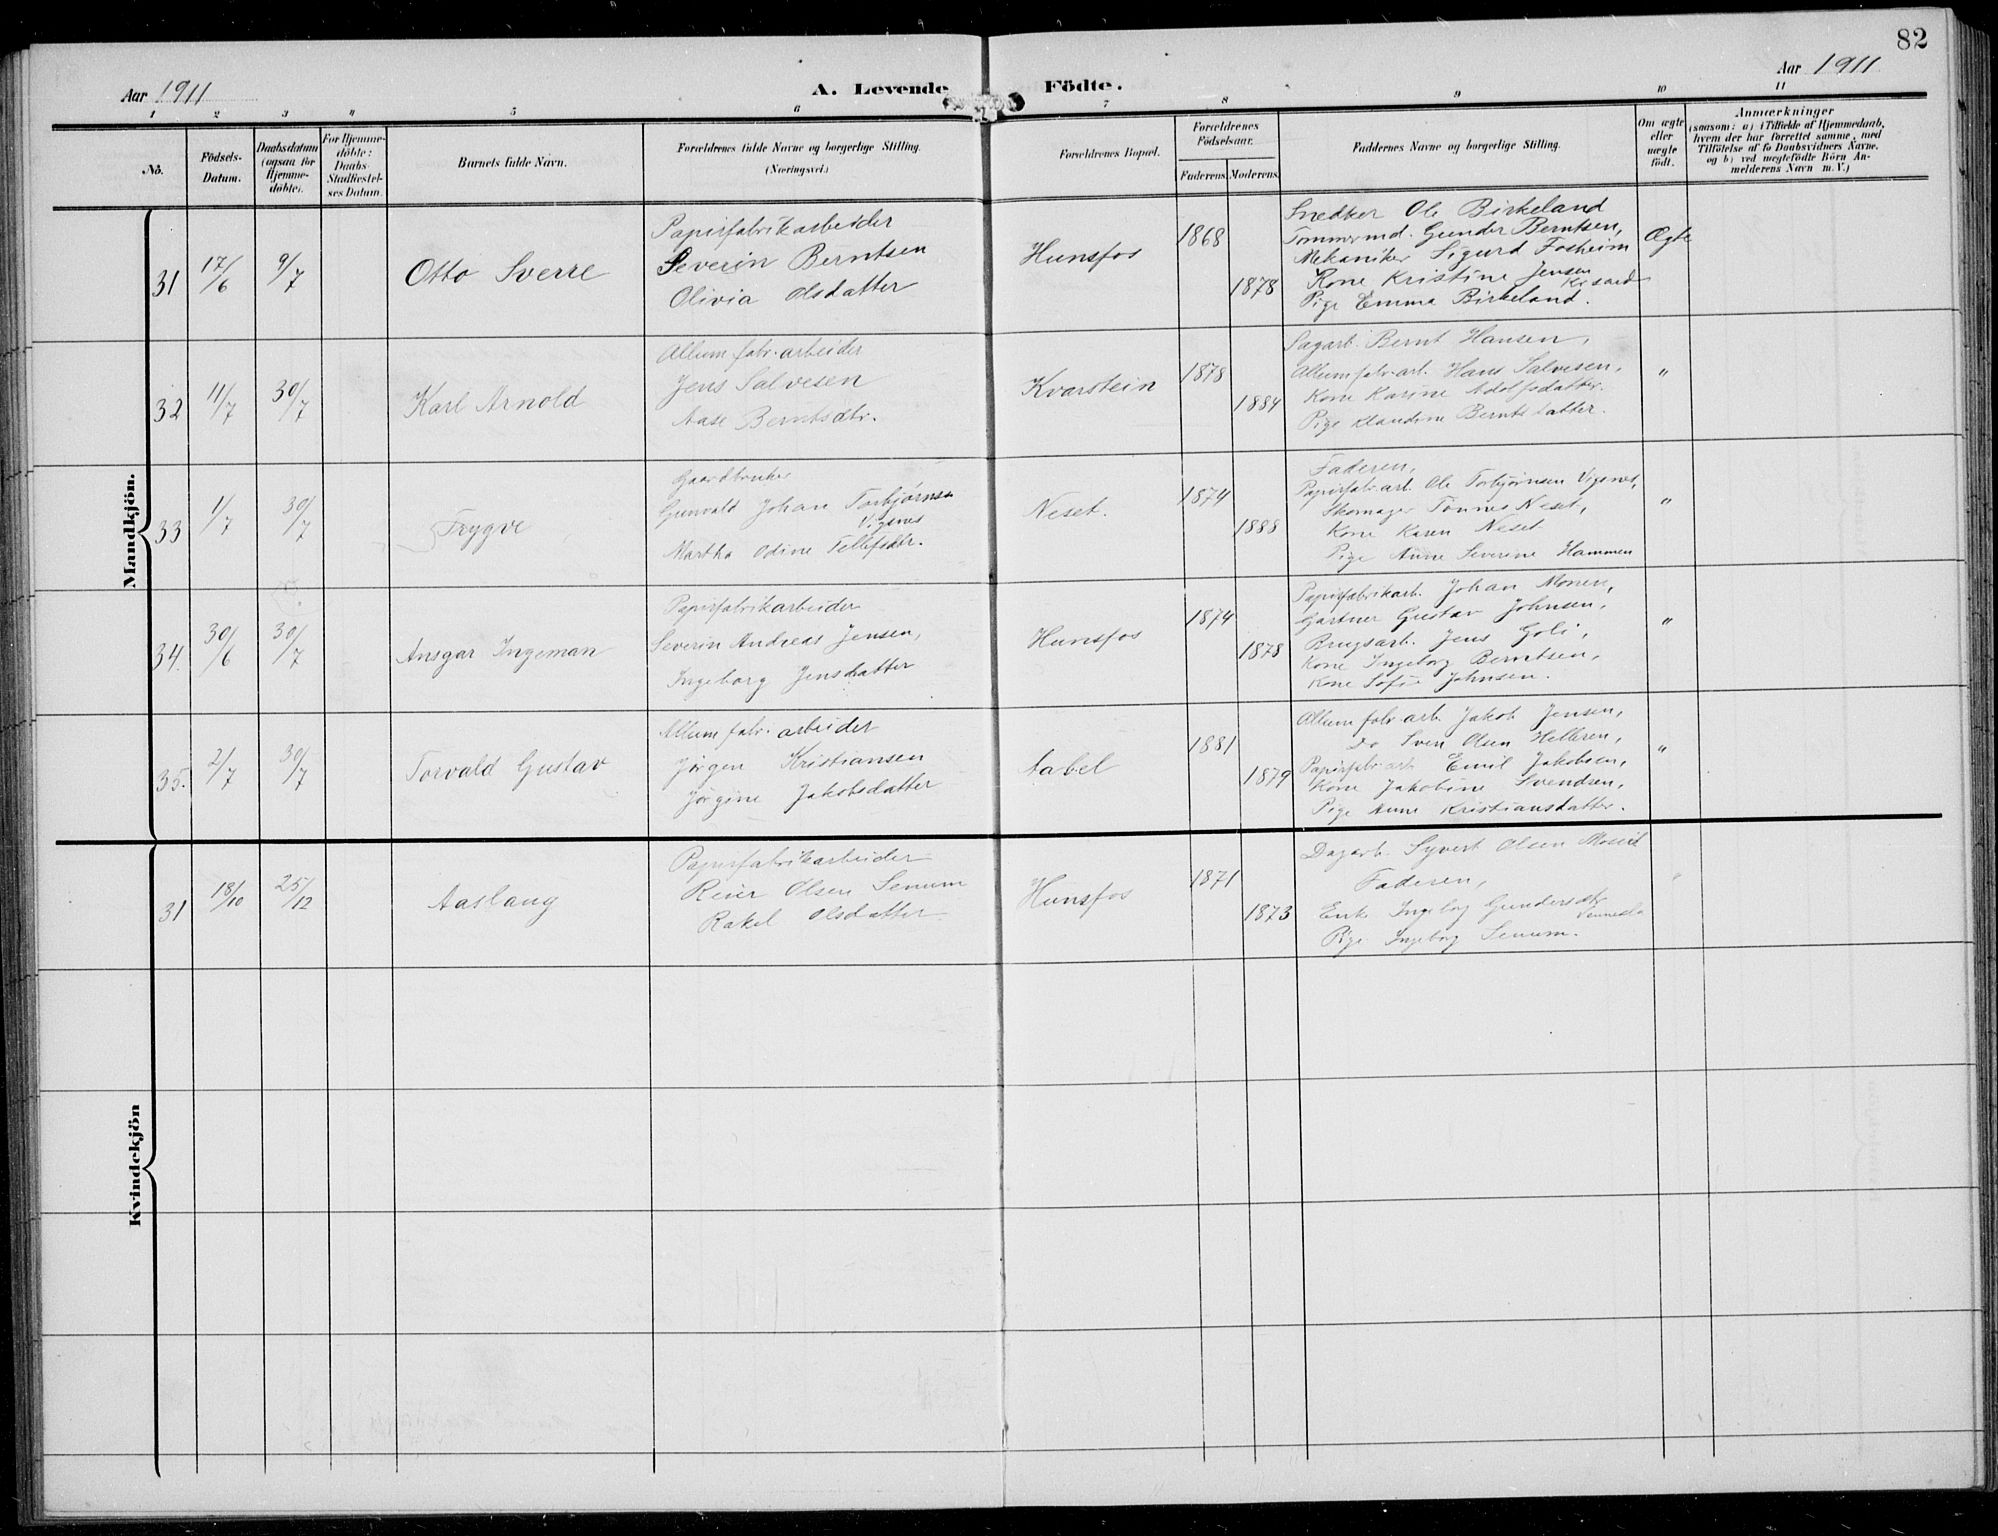 82
Aar 1911
A. Levende Födte.
Aar 1911
1 2 3 4 5 6 7 8 9 10 11
No.
Födsels-Datum.
Daabsdatum (ogsaa for Hjemme-döbte).
For Hjemme-döbte: Daabs Stadfæstel-ses Datum.
Barnets fulde Navn.
Forældrenes fulde Navne og borgerlige Stilling.
(Næringsvei.)
Forældrenes Bopæl.
Forældrenes Födselsaar.
Faderens. Moderens.
Faddernes Navne og borgerlige Stilling.
Om ægte eller uægte født.
Anmærkninger
(saasom: a) i Tilfælde af Hjemmedaab,
hvem der har forrettet samme, med
Tilföielse af to Daabsvidners Navne,
og b) ved uægtefödte Börn An-
melderens Navn m. V.)
Mandkjön.
31 17/6 9/7 Otto Sverre
Papirfabrikarbeider
Severin Berntsen
Olivia Olsdatter
Hunsfos 1868 1878
Snedker Ole Birkeland
Tømmermd. Gunder Berntsen,
Mekaniker Sigurd Fosheim
Kone Kristine Jensen
Pige Emma Birkeland.
Ægte
32 11/7 30/7 Karl Arnold
Allum fabr. arbeider
Jens Salvesen
Aase Berntsdtr.
Kvarstein 1878 1884
Sagarb. Bernt Hansen,
Allum fabr. arb. Hans Salvesen,
Kone Karine Adolfsdatter
Pige Klaudine Berntsdatter.
"
33 1/7 30/7 Trygve
Gaardbruker
Gunvald Johan Torbjørnsen
Vigenes
Martha Odine Tellefsdtr.
Neset. 1874 1888
Faderen,
Papirfabr. arb. Ole Torbjørnsen Vigenes,
Skomager Tønnes Neset,
Kone Karen Neset
Pige Anne Severine Hammen
"
34. 30/6 30/7 Ansgar Ingeman
Papirfabrikarbeider
Severin Andreas Jensen,
Ingeborg Jensdatter
Hunsfos 1874 1878
Papirfabrikarb. Johan Moner,
Gartner Gustav Johnsen,
Brugsarb. Jens Goli,
Kone Ingeborg Berntsen,
Kone Sofie Johnsen.
"
35. 2/7 30/7 Torvald Gustav
Allum fabr. arbeider
Jørgen Kristiansen
Jørgine Jakobsdatter
Aabel 1881 1879
Allum fabr. arb. Jakob Jensen,
Do Sven Olsen Helleren,
Papirfabr. arb. Emil Jakobsen,
Kone Jakobine Svendsen,
Pige Anne Kristiansdatter.
"
Kvindekjön
31 18/10 25/12 Aaslaug
Papirfabrikarbeider
Reier Olsen Senum
Rakel Olsdatter
Hunsfos 1871 1873
Dagarb. Syvert Olsen
Faderen,
Enke Ingeborg Gundersdtr
Vennesla
Pige Ingeborg Senum.